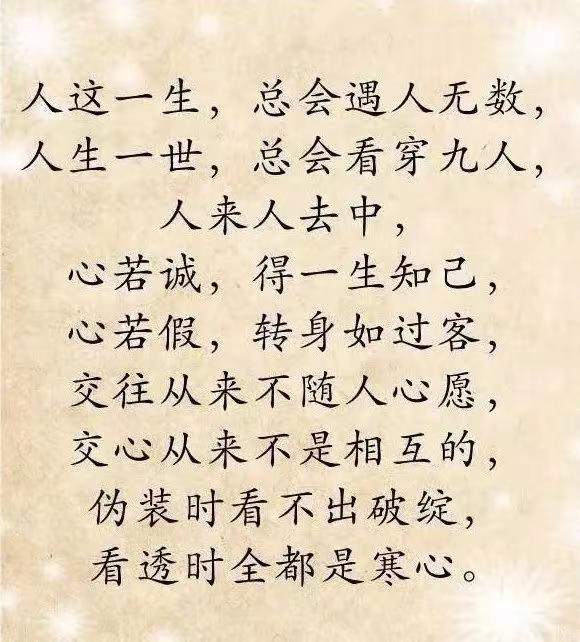 人这一生，总会遇人无数，
人生一世，总会看穿九人，
人来人去中，
心若诚，得一生知己，
心若假，转身如过客，
交往从来不随人心愿，
交心从来不是相互的，
伪装时看不出破绽，
看透时全都是寒心。